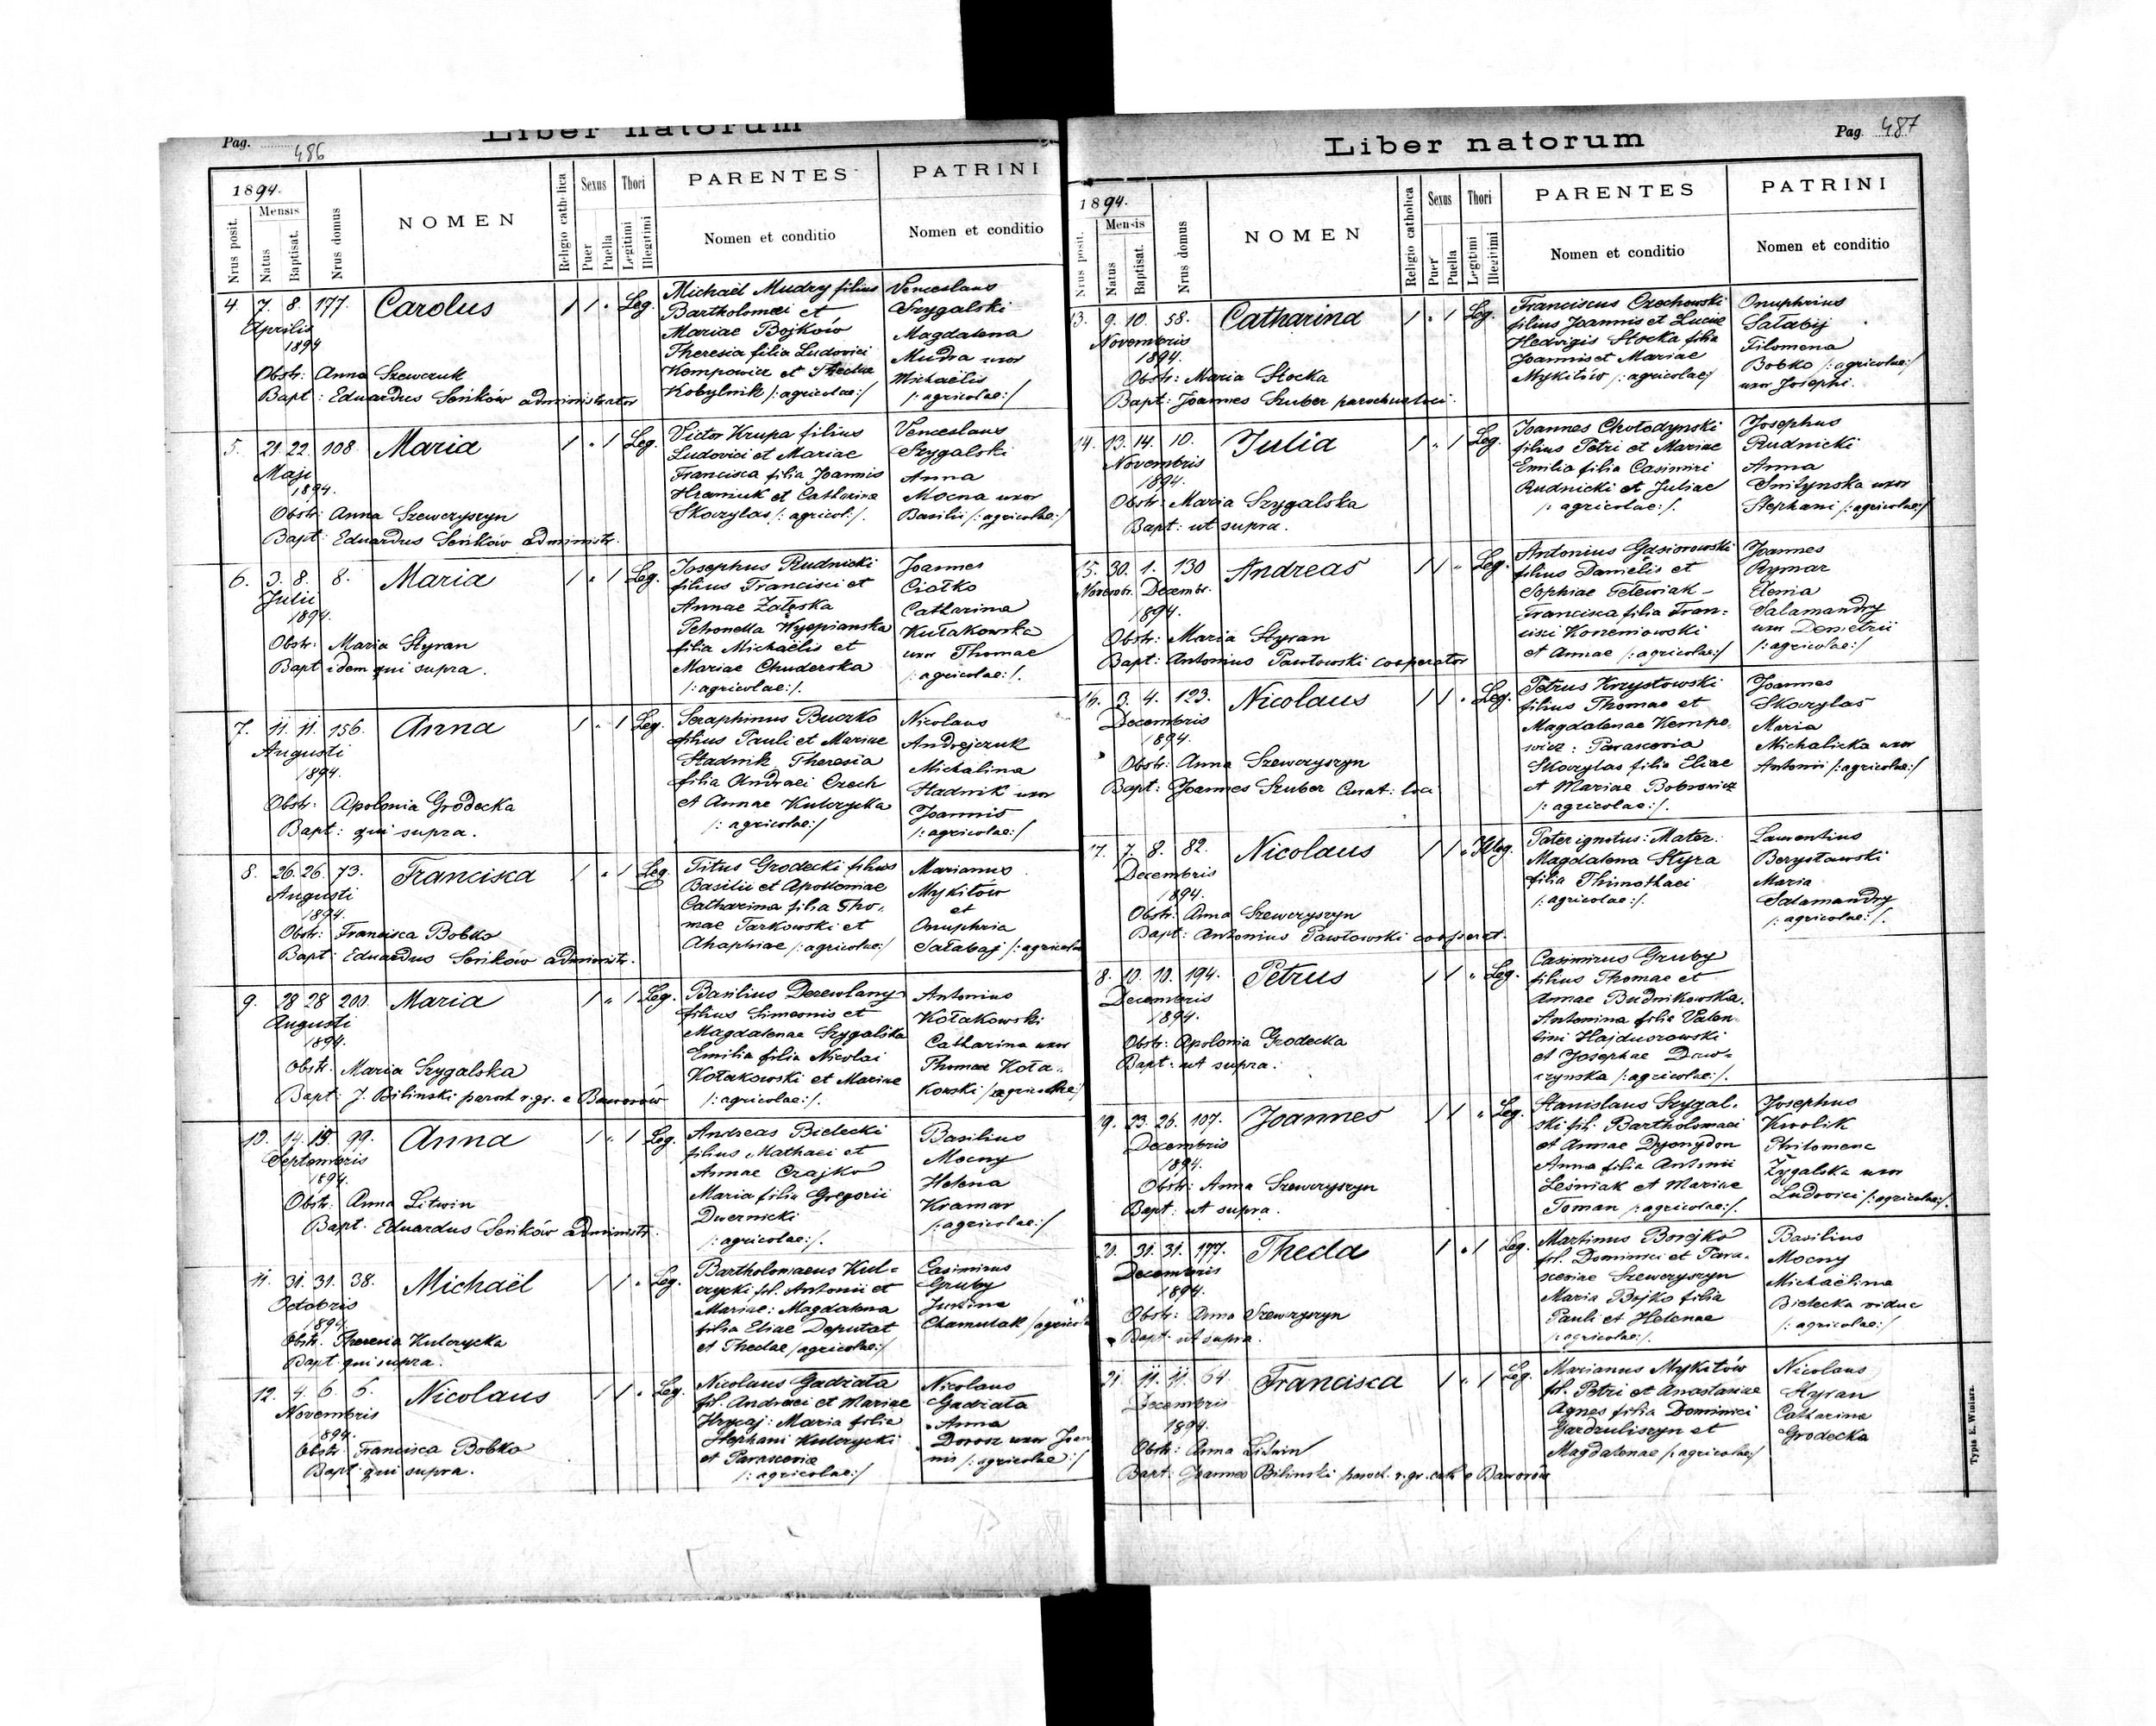 Pag. 486
Liber natorum
1894.
Nrus posit.
Mensis
Natus
Baptisat.
Nrus domus
NOMEN
Religio catholica
Sexus
Puer
Puella
Thori
Legitimi
Illegitimi
PARENTES
Nomen et conditio
PATRINI
Nomen et conditio
4. 7. 8. 177. Carolus 1 1 . Leg.
Aprilis
1894
Obstr: Anna Szewczuk
Bapt: Eduardus Seńków administrator
Michaël Mudry filius
Bartholomaei et
Mariae Bojków
Theresia filia Ludovici
Kempowicz et Theclae
Kobylnik /: agricolae:/
Venceslaus
Szygalski
Magdalena
Mudra uxor
Michaëlis
/: agricolae:/
5. 21. 22. 108. Maria 1 . 1 Leg.
Maji
1894.
Obstr: Anna Szewczyszyn
Bapt: Eduardus Seńków administr.
Victor Krupa filius
Ludovici et Mariae
Francisca filia Joannis
Hramiuk et Catharina
Skorzylas /: agricol:/.
Venceslaus
Szygalski
Anna
Mocna uxor
Basilii /: agricolae:/
6. 3. 8. 8. Maria 1 . 1 Leg.
Julii
1894.
Obstr: Maria Styran
Bapt idem qui supra.
Josephus Rudnicki
filius Francisci et
Annae Załęska
Petronella Wyspianska
filia Michaëlis et
Mariae Chuderska
/: agricolae:/.
Joannes
Ciołko
Catharina
Kułakowska
uxor Thomae
/: agricolae:/.
7. 11. 11. 156. Anna 1 . 1 Leg.
Augusti
1894.
Obstr: Apolonia Grodecka
Bapt: qui supra.
Seraphinus Buczko
filius Pauli et Mariae
Stadnik Theresia
filia Andreae Czech
et Annae Kulczycka
/: agricolae:/
Nicolaus
Andrejczuk
Michalina
Stadnik uxor
Joannis
/: agricolae:/
8. 26. 26. 73. Francisca 1 . 1 Leg.
Augusti
1894.
Obstr: Francisca Bobko
Bapt: Eduardus Seńków administr.
Titus Grodecki filius
Basilii et Apolloniae
Catharina filia Tho-
mae Tarkowski et
Ahaphiae /: agricolae:/
Marianus
Mykitów
et
Onuphria
Sałabaj /: agricolae
9. 28 28 200. Maria 1 . 1 Leg.
Augusti
1894.
Obstr: Maria Szygalska
Bapt: J. Bilinski paroch r. gr. e Baworów
Basilius Derewlany
filius Simeonis et
Magdalenae Szygalska
Emilia filia Nicolai
Kołakowski et Mariae
/: agricolae:/.
Antonius
Kołakowski
Catharina uxor
Thomae Koła-
kowski /: agricolae:/
10. 14. 15. 99. Anna 1 . 1 Leg.
Septembris
1894.
Obstr: Anna Litwin
Bapt. Eduardus Seńków administr.
Andreas Bielecki
filius Mathaei et
Annae Czajko
Maria filia Gregorii
Dwernicki
/: agricolae:/.
Basilius
Mocny
Helena
Kramar
/: agricolae:/
11. 31. 31. 38. Michaël 1 1 . Leg.
Octobris
1894.
Obstr. Theresia Kulczycka
Bapt. qui supra.
Bartholomaeus Kul-
czycki fil. Antonii et
Mariae: Magdalena
filia Eliae Deputat
et Theclae /agricolae:/
Casimirus
Gruby
Justina
Chamulak /agricol
12. 4. 6. 6. Nicolaus 1 1 . Leg.
Novembris
1894.
Obstr. Francisca Bobko
Bapt: qui supra.
Nicolaus Gadziała
fil. Andreae et Mariae
Hrycaj: Maria filia
Stephani Kulczycki
et Parascevia
/: agricolae:/
Nicolaus
Gadziała
Anna
Dorosz uxor Joan
nis /: agricolae:/
Pag. 487
Liber natorum
1894.
Nrus posit.
Mensis
Natus
Baptisat.
Nrus domus
NOMEN
Religio catholica
Sexus
Puer
Puella
Thori
Legitimi
Illegitimi
PARENTES
Nomen et conditio
PATRINI
Nomen et conditio
13. 9. 10. 58. Catharina 1 . 1 Leg.
Novembris
1894.
Obstr: Maria Stocka
Bapt: Joannes Szuber parochus loci.
Franciscus Czechowski
filius Joannis et Luciae
Hedvigis Stocka filia
Joannis et Mariae
Mykitów /: agricolae:/
Onuphrius
Sałabij
Filomena
Bobko /: agricolae:/
uxor Josephi.
14. 13. 14. 10. Julia 1 . 1 Leg.
Novembris
1894.
Obstr: Maria Szygalska
Bapt: ut supra.
Joannes Chołodynski
filius Petri et Mariae
Emilia filia Casimiri
Rudnicki et Juliae
/: agricolae:/.
Josephus
Rudnicki
Anna
Smitynska uxor
Stephani /: agricolae:/
15. 30. 1. 130 Andreas 1 1 . Leg.
Novembr. Decembr.
1894.
Obstr: Maria Styran
Bapt: Antonius Pawłowski cooperator
Antonius Gąsiorowski
filius Danielis et
Sophiae Telewiak -
Francisca filia Fran-
cisci Koneniowski
et Annae /: agricolae:/
Joannes
Rymar
Xenia
Salamandry
uxor Demetrii
/: agricolae:/
16. 3. 4. 123. Nicolaus 1 1 . Leg.
Decembris
1894.
Obstr: Anna Szewczyszyn
Bapt: Joannes Szuber Curat: loci
Petrus Krzystowski
filius Thomae et
Magdalenae Kempo-
wicz: Parascevia
Skorzylas filia Eliae
et Mariae Bobrowicz
/: agricolae:/.
Joannes
Skorzylas
Maria
Michalicka uxor
Antonii /: agricolae:/
17. 7. 8. 82. Nicolaus 1 1 . Illeg.
Decembris
1894.
Obstr: Anna Szewczyszyn
Bapt: Antonius Pawłowski cooperat.
Pater ignotus: Mater:
Magdalena Styra
filia Thimothaei
/: agricolae:/.
Laurentius
Berysławski
Maria
Salamandry
/: agricolae:/.
18. 10. 10. 194. Petrus 1 1 . Leg.
Decembris
1894.
Obstr: Apolonia Grodecka
Bapt: ut supra.
Casimirus Gruby
filius Thomae et
Annae Budnikowska.
Antonina filia Valen-
tini Hajdusrowski
et Josephae Daw-
czynska /: agricolae:/.
19. 23. 26. 107. Joannes 1 1 . Leg.
Decembris
1894.
Obstr: Anna Szewczyszyn
Bapt: ut supra.
Stanislaus Szygal-
ski fil. Bartholomaei
et Annae Dyonydon
Anna filia Antonii
Leśniak et Mariae
Toman /: agricolae:/.
Josephus
Kwolik
Philomena
Żygalska uxor
Ludovici /: agricolae:/.
20. 31. 31. 177. Thecla 1 . 1 Leg.
Decembris
1894.
Obstr: Anna Szewczyszyn
Bapt: ut supra.
Martinus Borejko
fil. Dominici et Para-
sceviae Szewczyszyn
Maria Bojko filia
Pauli et Helenae
/: agricolae:/.
Basilius
Mocny
Michaëlina
Bielecka vidua
/: agricolae:/
21. 11. 11. 64. Francisca 1 . 1 Leg.
Decembris
1894.
Obstr: Anna Litwin
Bapt: Joannes Bilinski paroch. r. gr. cath e Baworów
Marianus Mykitów
fil. Petri et Anastasiae
Agnes filia Dominici
Gardzuliszyn et
Magdalenae /: agricolae:/
Nicolaus
Styran
Catharina
Grodecka
Typis E. Winiarz.